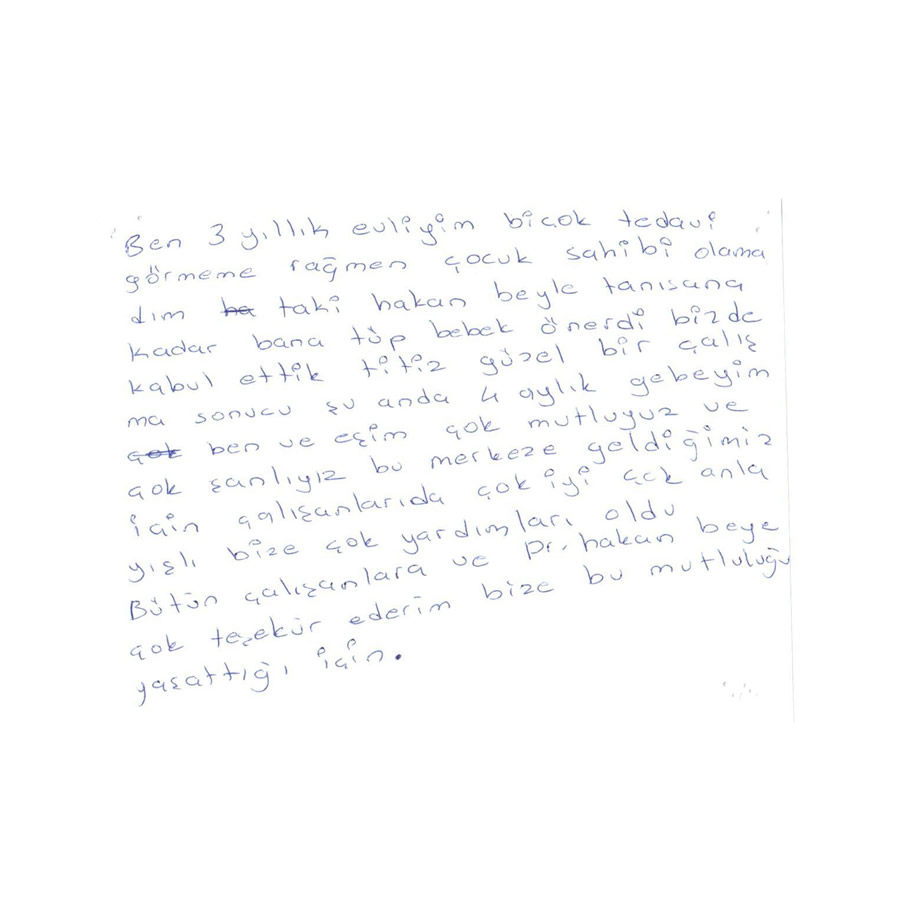 Ben 3 yıllık evliyim biçok tedavi
görmeme rağmen çocuk sahibi olama
dım ha taki hakan beyle tanısana
kadar bana tüp bebek önerdi bizde
kabul ettik titiz güzel bir çalış
ma sonucu şu anda 4 aylık gebeyim
çok ben ve eşim çok mutluyuz ve
çok şanlıyız bu merkeze geldiğimiz
için çalışanlarıda çok iyi çok anla
yışlı bize çok yardımları oldu
Bütün çalışanlara ve Dr. hakan beye
çok teşekür ederim bize bu mutluluğu
yaşattığı için.